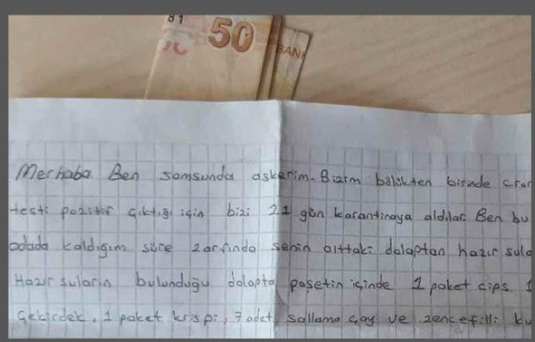 81
50
BAN
Merhaba Ben samsunda askerim. Bizim bölükten birinde cror
testi pozitif çıktığı için bizi 21 gün karantinaya aldılar Ben bu
odada kaldığım süre zarfında senin alttaki dolaptan hazır sula
Hazır suların bulunduğu dolapta poşetin içinde 1 paket cips 1
Çekirdek, 1 paket krispi, 7 adet sallama çay ve zencefilli ku